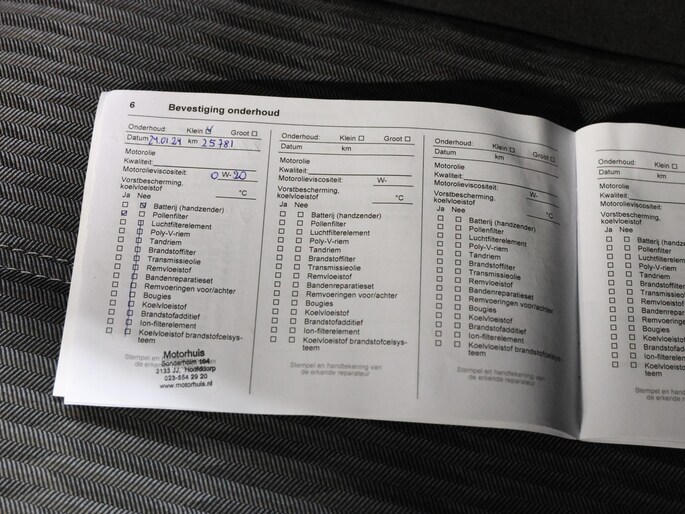 6
Bevestiging onderhoud
Onderhoud: Klein Groot
Datum 24.01.24 km 25781
Motorolie
Kwaliteit:
Motorolieviscositeit: 0 W- 20
Vorstbescherming,
koelvloeistof °C
Ja Nee
Batterij (handzender)
Pollenfilter
Luchtfilterelement
Poly-V-riem
Tandriem
Brandstoffilter
Transmissieolie
Remvloeistof
Bandenreparatieset
Remvoeringen voor/achter
Bougies
Koelvloeistof
Brandstofadditief
Ion-filterelement
Koelvloeistof brandstofcelsys-
teem
Stempel en
de erken
Motorhuis
2133 JJ, Hoofddorp
023-554 29 20
www.motorhuis.nl
Onderhoud: Klein Groot
Datum km
Motorolie
Kwaliteit:
Motorolieviscositeit: W-
Vorstbescherming,
koelvloeistof °C
Ja Nee
Batterij (handzender)
Pollenfilter
Luchtfilterelement
Poly-V-riem
Tandriem
Brandstoffilter
Transmissieolie
Remvloeistof
Bandenreparatieset
Remvoeringen voor/achter
Bougies
Koelvloeistof
Brandstofadditief
Ion-filterelement
Koelvloeistof brandstofcelsys-
teem
Stempel en handtekening van
de erkende reparateur
Onderhoud: Klein Groot
Datum km
Motorolie
Kwaliteit:
Motorolieviscositeit: W-
Vorstbescherming,
koelvloeistof °C
Ja Nee
Batterij (handzender)
Pollenfilter
Luchtfilterelement
Poly-V-riem
Tandriem
Brandstoffilter
Transmissieolie
Remvloeistof
Bandenreparatieset
Remvoeringen voor/achter
Bougies
Koelvloeistof
Brandstofadditief
Ion-filterelement
Koelvloeistof brandstofcelsys-
teem
Stempel en handtekening van
de erkende reparateur
Onderhoud: Klein
Datum km
Motorolie
Kwaliteit:
Motorolieviscositeit:
Vorstbescherming,
koelvloeistof
Ja Nee
Batterij (handzender)
Pollenfilter
Luchtfilterelement
Poly-V-riem
Tandriem
Brandstoffilter
Transmissieolie
Remvloeistof
Bandenrepar
Remvoeringen
Bougies
Koelvloeistof
Brandstofadditief
Ion-filterelement
Koelvloeistof
teem
Stempel en hand
de erkende re